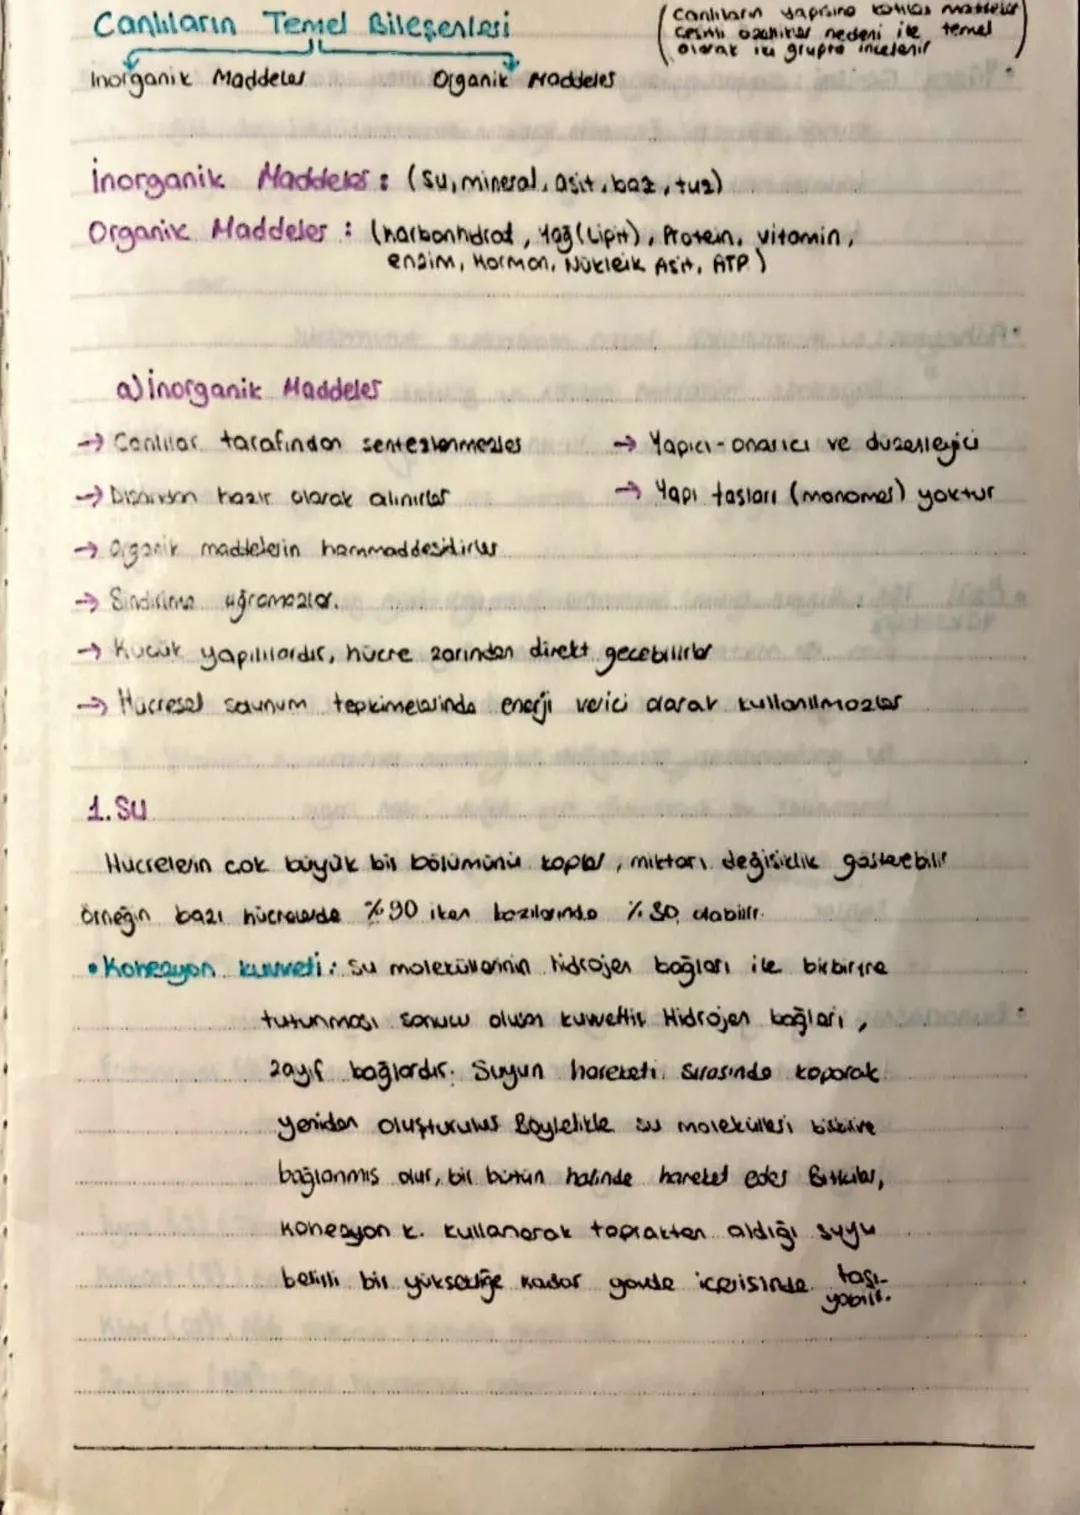 Canlıların Temel Bileşenleri
(Canlıların yapısına katılan maddeler
çeşitli özellikler nedeni ile temel
olarak iki grupta incelenir)
İnorganik Maddeler Organik Maddeler
İnorganik Maddeler : (Su, mineral, asit, baz, tuz)
Organik Maddeler : (karbonhidrat, Yağ (Lipit), Protein, vitamin,
enzim, Hormon, Nükleik Asit, ATP)
a) İnorganik Maddeler
→ Canlılar tarafından sentezlenmezler
→ Yapıcı-onarıcı ve düzenleyici
→ Dışarıdan hazır olarak alınırlar
→ Yapı taşları (monomer) yoktur
→ Organik maddelerin hammaddesidirler
→ Sindirime uğramazlar.
→ Küçük yapılılardır, hücre zarından direkt geçebilirler
→ Hücresel solunum tepkimelerinde enerji verici olarak kullanılmazlar
1. SU
Hücrelerin çok büyük bir bölümünü kaplar, miktarı değişiklik gösterebilir
örneğin bazı hücrelerde %90 iken bazılarında olabilir.
• Kohezyon kuvveti: Su moleküllerinin hidrojen bağları ile birbirine
tutunması sonucu oluşan kuvvettir Hidrojen bağları,
zayıf bağlardır. Suyun hareketi sırasında koparak
yeniden oluşturulur Böylelikle su molekülleri birbirine
bağlanmış olur, bir bütün halinde hareket eder Bitkiler,
Kohezyon k. kullanarak topraktan aldığı suyu
belirli bir yüksekliğe kadar gövde içerisinde taşı-
yabilir.